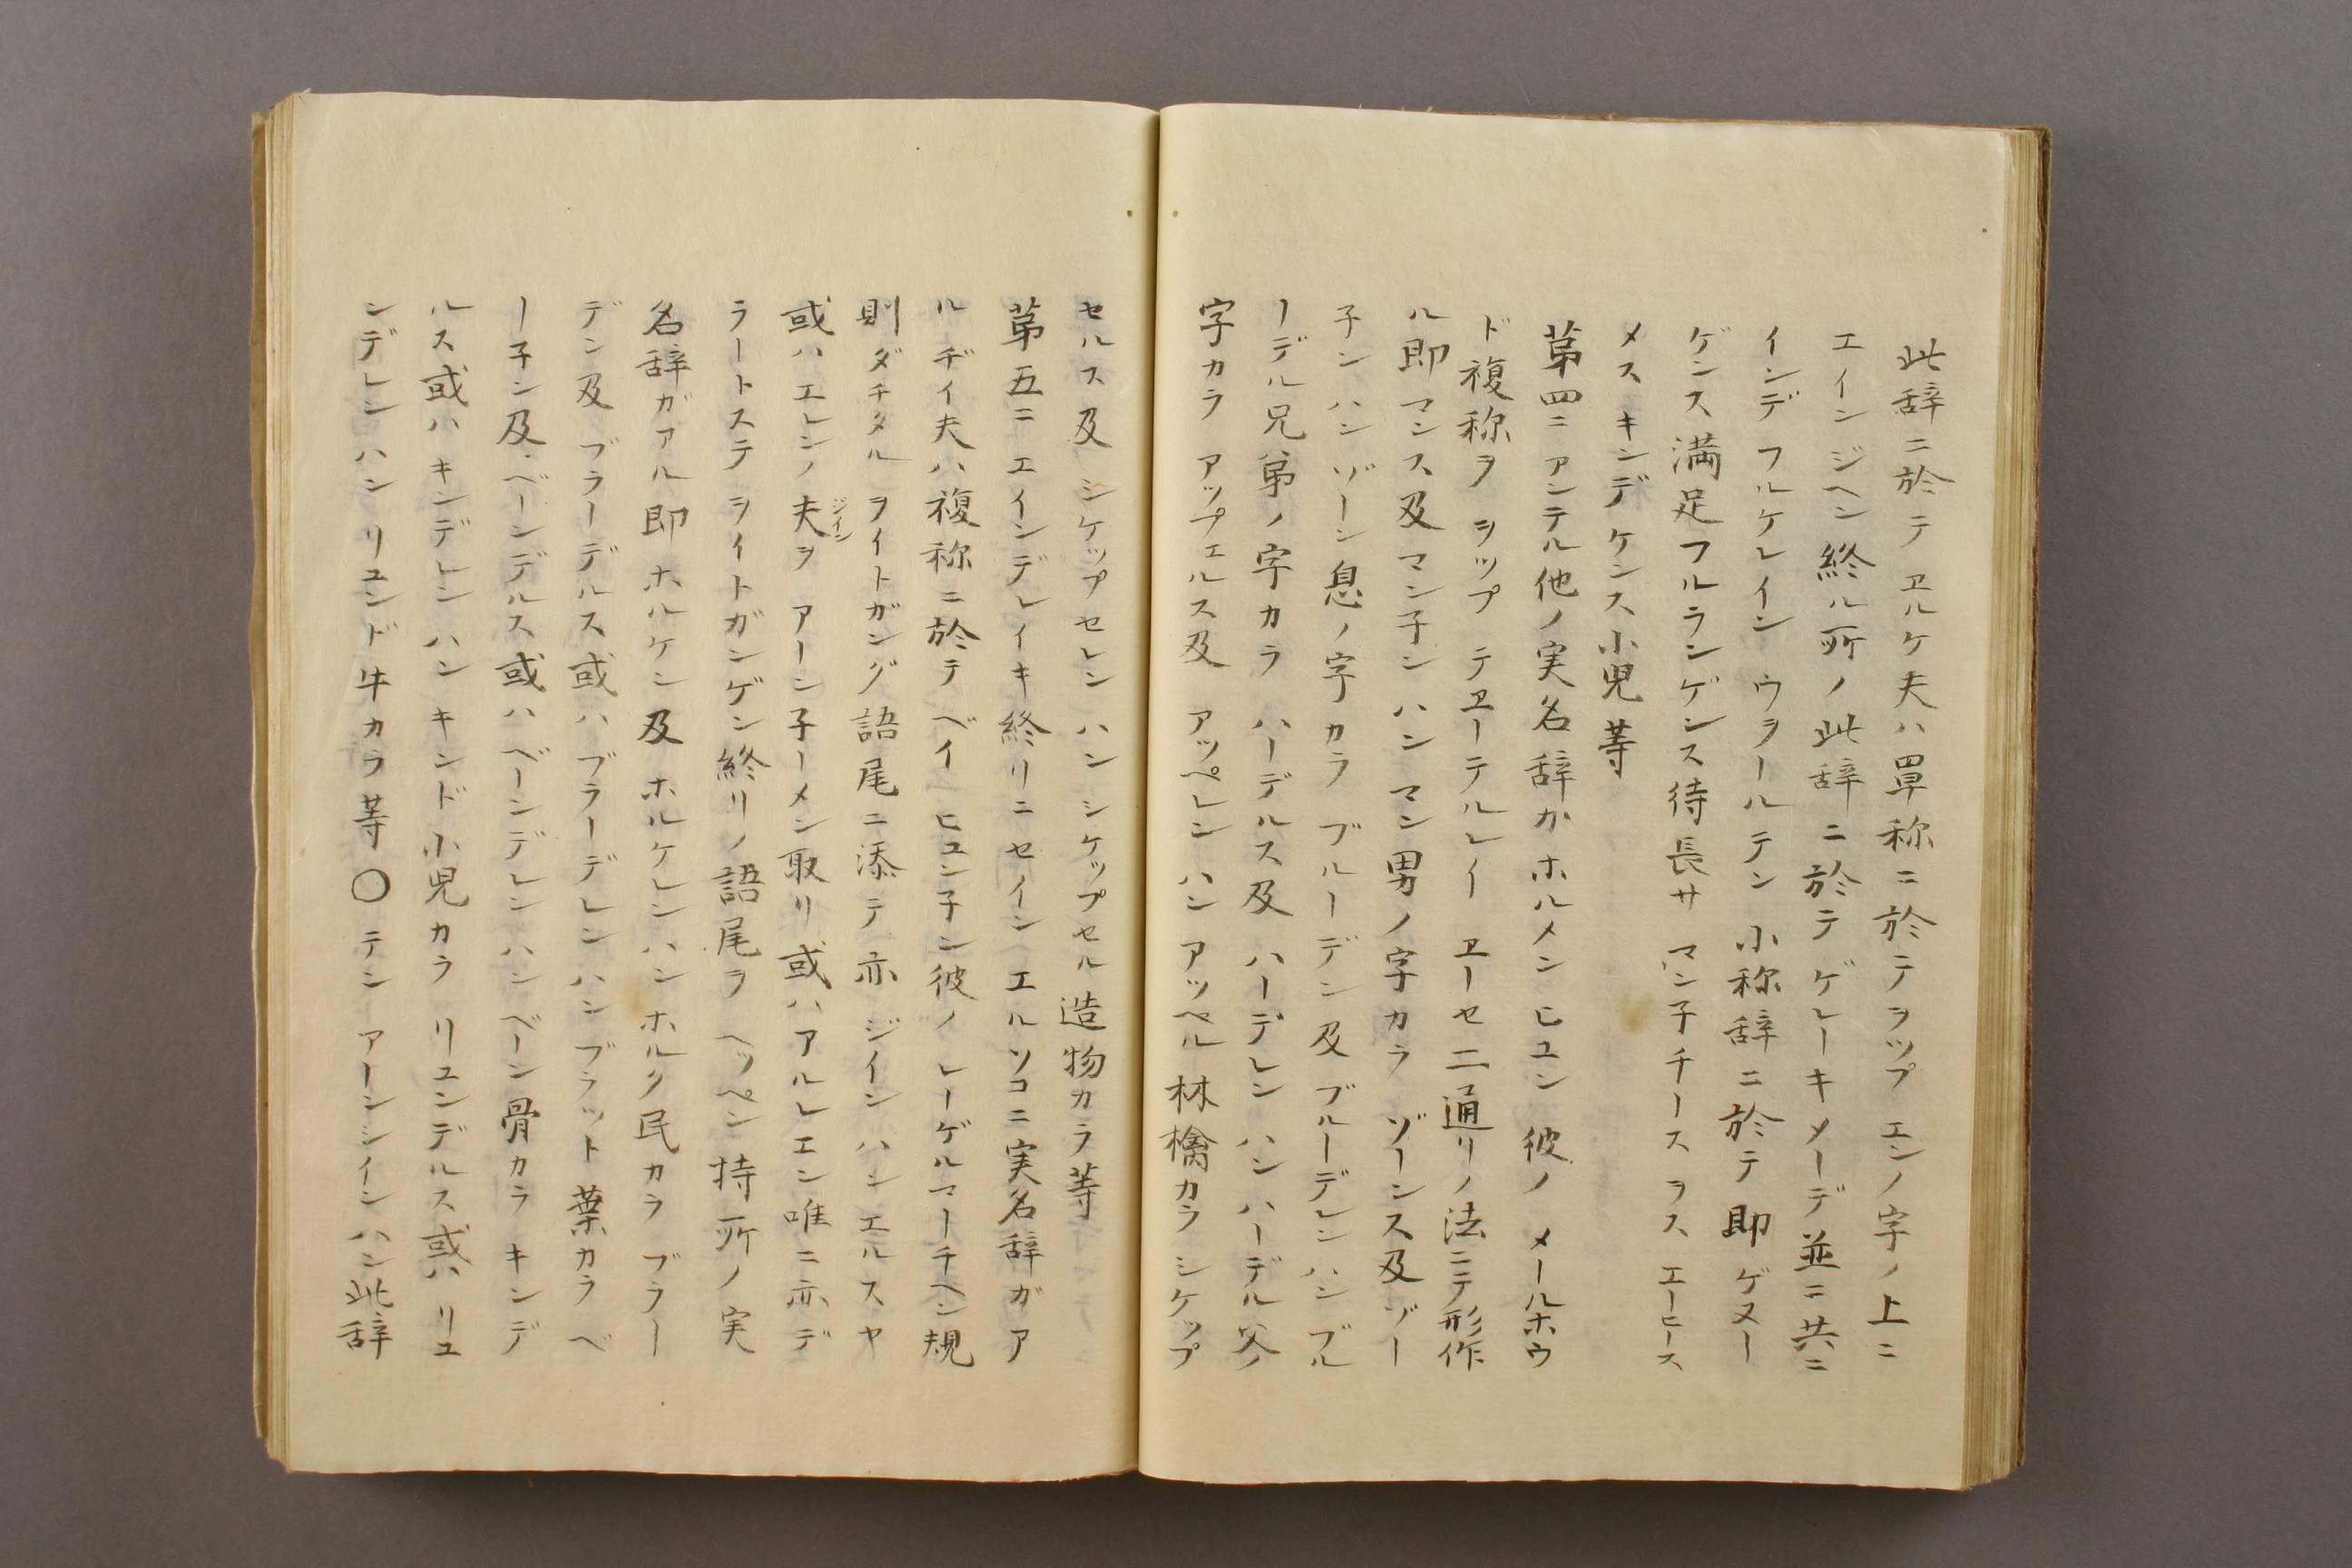 此辞ニ於テヱルケ夫ハ單称ニ於テヲップ エンノ字ノ上ニ
エインジヘン終ル所ノ此辞ニ於テゲレーキメーデ並ニ共ニ
インデフルケレイン ウヲールテン 小称辞ニ於テ即ゲヌー
ゲンス満足フルランゲンス待長サ マン子チースヲス エーヒース
メス キンデケンス小児等
第四ニアンテル他ノ実名辞カホルメンヒユン 彼ノ メールホウ
ド複称ヲ ヲップ テヱーテルレイ ヱーセ二通リノ法ニテ形作
ル即マンス及マン子ン ハン マン男ノ字カラ ゾーンス及ゾー
子ン ハン ゾーン息ノ字カラ ブルーデン及ブルーデレンハンブル
ーデル兄第ノ字カラ ハーデルス及 ハーデレン ハン ハーデル父ノ
字カラ アップエルス及 アッペレン ハン アッペル 林檎カラ シケップ
セルス及 シケップセレン ハン シケップセル造物カラ等
第五ニ エインデレイキ終リニセイン エルソコニ実名辞ガア
ルヂイ夫ハ複称ニ於テ ベイ ヒユン子ン彼ノ レーゲルマーチヘン規
則ダチタル ヲイトガング語尾ニ添テ亦 ジイン ハン エルスヤ
或ハエレンノ夫ジインヲ アーン子ーメン取リ或ハアルレエン唯ニ亦デ
ラートステ ヲイトガンゲン終リノ語尾ヲ ヘッペン 持所ノ実
名辞ガアル即ホルケン及 ホルケレン ハンホルク民カラ ブラー
デン及 ブラーデルス或ハ ブラーデレン ハンブラット葉カラベ
ー子ン及ベーンデルス或ハベーンデレン ハンベーン骨カラ キンデ
ルス或ハキンデレンハン キンド小児カラ リユンデルス或ハ リユ
ンデレンハン リユンド牛カラ等〇テン アーンシインハン此辞